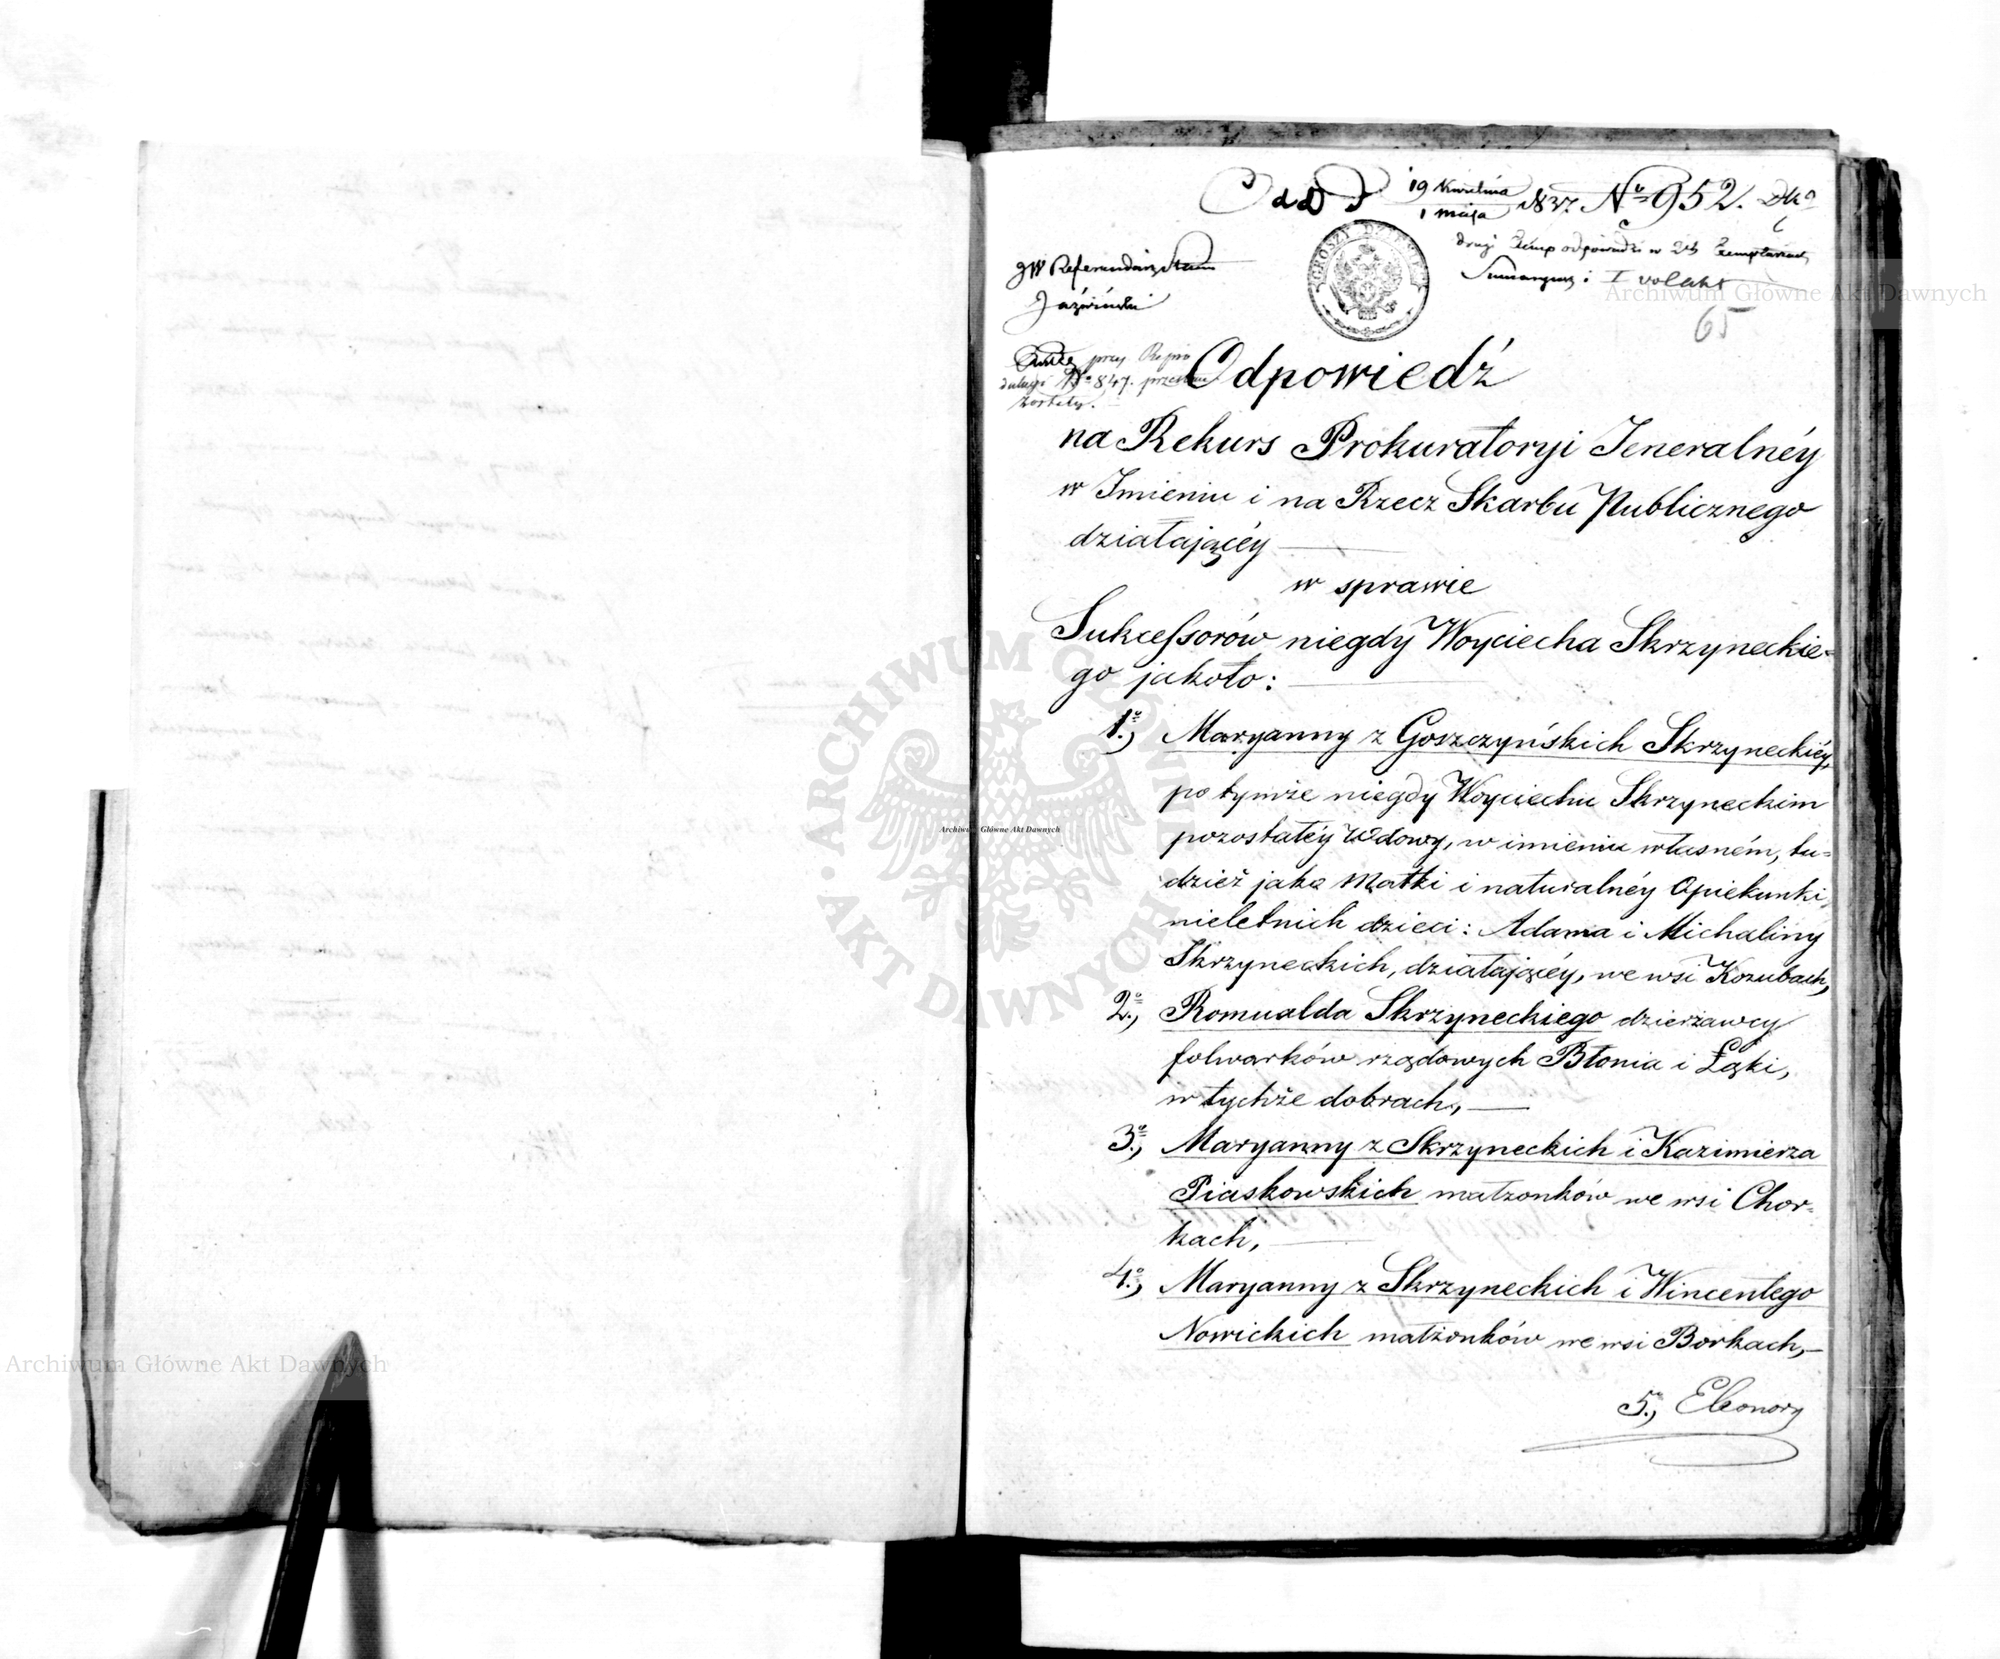 19 Kwietnia
1 maja 1837 No 952.
drugi Exemp odpowiedzi w 2ch Exemplarzach
Sumaryusz i I
JW Referendarz Stanu
Jaźwiński
GROSZY DZIESIĘĆ
65
przy Rejno
No 847.
zostały.
Odpowiedź
na Rekurs Prokuratoryi Jeneralnéy
w Imieniu i na Rzecz Skarbu Publicznego
działającéy
w sprawie
Sukcessorów niegdy Woyciecha Skrzyneckie=
go jakoto:
1o., Maryanny z Goszczyńskich Skrzyneckiéy,
po tymże niegdy Woyciechu Skrzyneckim
pozostałéy Wdowy, w imieniu własném, tu=
dzież jako Matki i naturalnéy Opiekunki,
nieletnich dzieci: Adama i Michaliny
Skrzyneckich, działającéy, we wsi Kozubach,
2o., Romualda Skrzyneckiego dzierżawcy
folwarków rządowych Błonia i Łąki,
w tychże dobrach,
3o., Maryanny z Skrzyneckich i Kazimierza
Piaskowskich małżonków we wsi Chor=
kach,
4o., Maryanny z Skrzyneckich i Wincentego
Nowickich małżonków we wsi Borkach,
5o., Eleonory
Archiwum Główne Akt Dawnych
ARCHIWUM GŁÓWNE AKT DAWNYCH
Archiwum Główne Akt Dawnych
Archiwum Główne Akt Dawnych